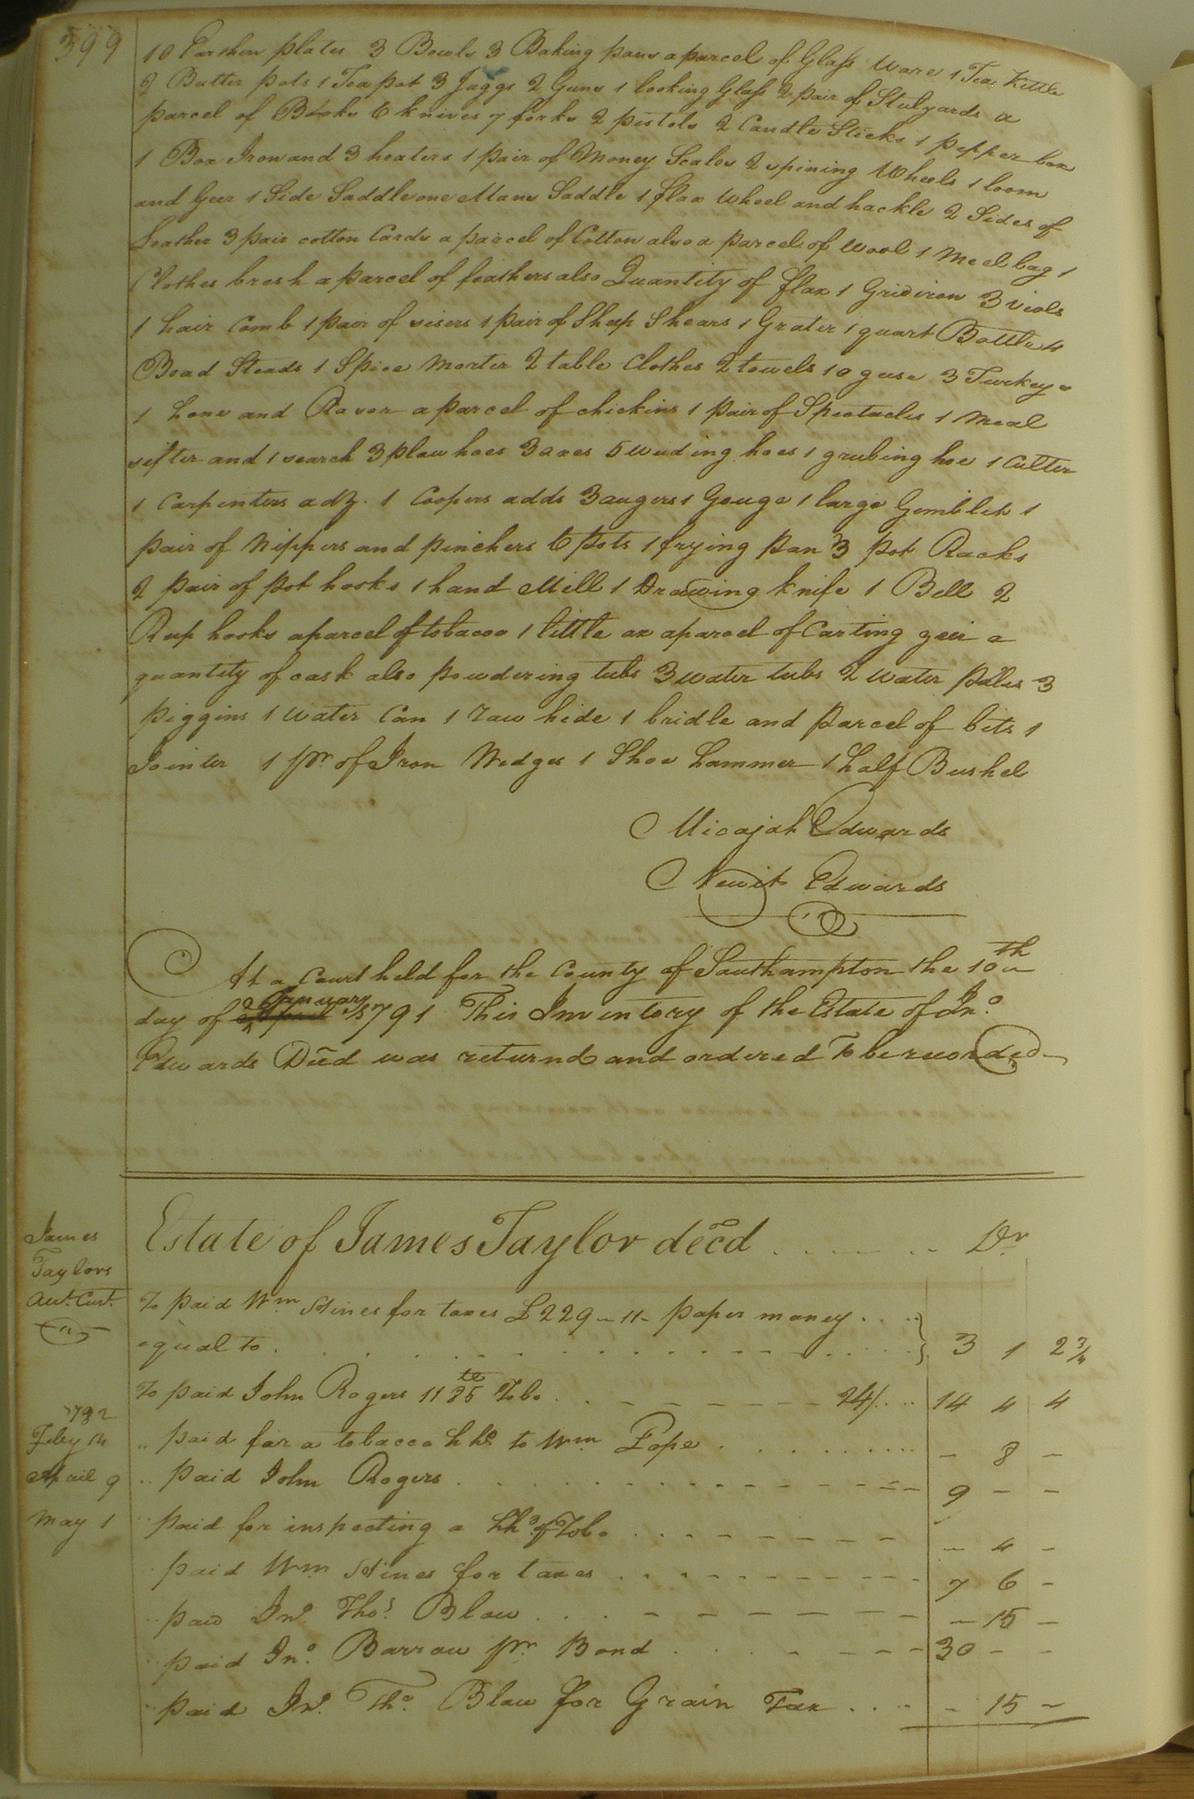 399
10 Earthen plates 3 Bowls 3 Baking pans a parcel of Glass Ware 1 Tea Kettle
2 Butter pots 1 Tea pot 3 Juggs 2 Guns 1 looking Glass 2 pair of Stilyards a
parcel of Books 6 knives 7 forks 2 pistols 2 Candle Sticks 1 pepper box
1 Box Iron and 3 heaters 1 pair of Money Scales 2 spining Wheels 1 loom
and Geer 1 Side Saddle one Mans Saddle 1 flax Wheel and hackle 2 Sides of
Leather 3 pair cotton Cards a parcel of Cotton also a parcel of wool 1 Meel bag 1
Clothes bresh a parcel of feathers also Quantity of flax 1 Gridiron 3 Viols
1 hair Comb 1 pair of sisers 1 pair of Sheep Shears 1 Grater 1 quart Bottle 4
Bead Steads 1 Spice Morter 2 table Clothes 2 towels 10 geese 3 Turkeys
1 hone and Rasor a parcel of chickins 1 pair of Spectacles 1 Meal
sifter and 1 search 3 plow hoes 3 axes 5 weeding hoes 1 grubing hoe 1 Cutter
1 Carpenters adz. 1 Coopers adds 3 augers 1 Gouge 1 large Gemblet 1
pair of Nippers and pinchers 6 pots 1 frying pan 3 pot Racks
2 pair of pot hooks 1 hand Mill 1 Drawing knife 1 Bell 2
Reap hooks a parcel of tobacco 1 little ax a parcel of Carting geer a
quantity of cask also powdering tubs 3 water tubs 2 water pales 3
piggins 1 water Can 1 raw hide 1 bridle and parcel of bits 1
Jointer 1 pr. of Iron Wedges 1 Shoe hammer 1 half Bushel
Micajah Edwards
Newit Edwards
At a Court held for the County of Southampton the 10th
January
day of April 1791 This Inventory of the Estate of Jno.
Edwards Decd was returnd and ordered To be recorded
Estate of James Taylor decd Dr
James
Taylors
acct. Curt.
To paid Wm Hines for taxes £229 - 11 - paper money
equal to 3 1 2 3/4
To paid John Rogers 11 85 Tobo 24/ 14 4 4
1782
Feby 14 " paid for a tobacco hhd to Wm Pope - 8 -
April 9 " paid John Rogers 9 - -
May 1 paid for inspecting a hhd of Tobo - 4 -
paid Wm Hines for taxes 7 6 -
" paid Jno. Thos. Blow - 15 -
" paid Jno. Barrow pr. Bond 30 - -
" paid Jno. Tho. Blow for Grain Tax - 15 -